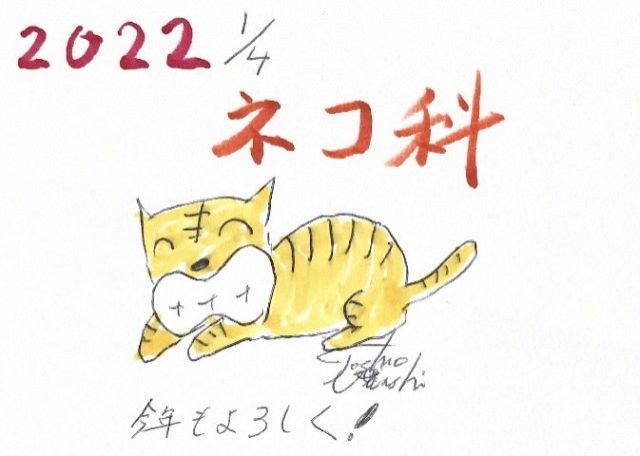 2022 1/4
ネコ科
今年もよろしく!